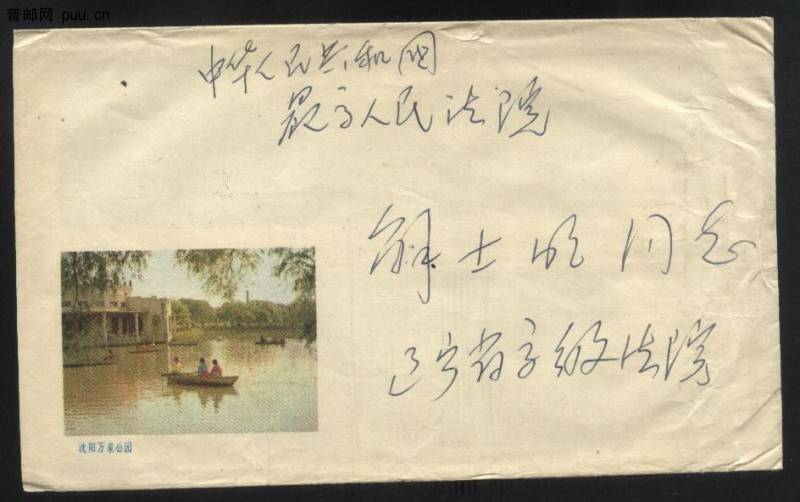 普邮网 puu.cn
中华人民共和国
最高人民法院
解士明同志
辽宁省高级法院
沈阳万泉公园